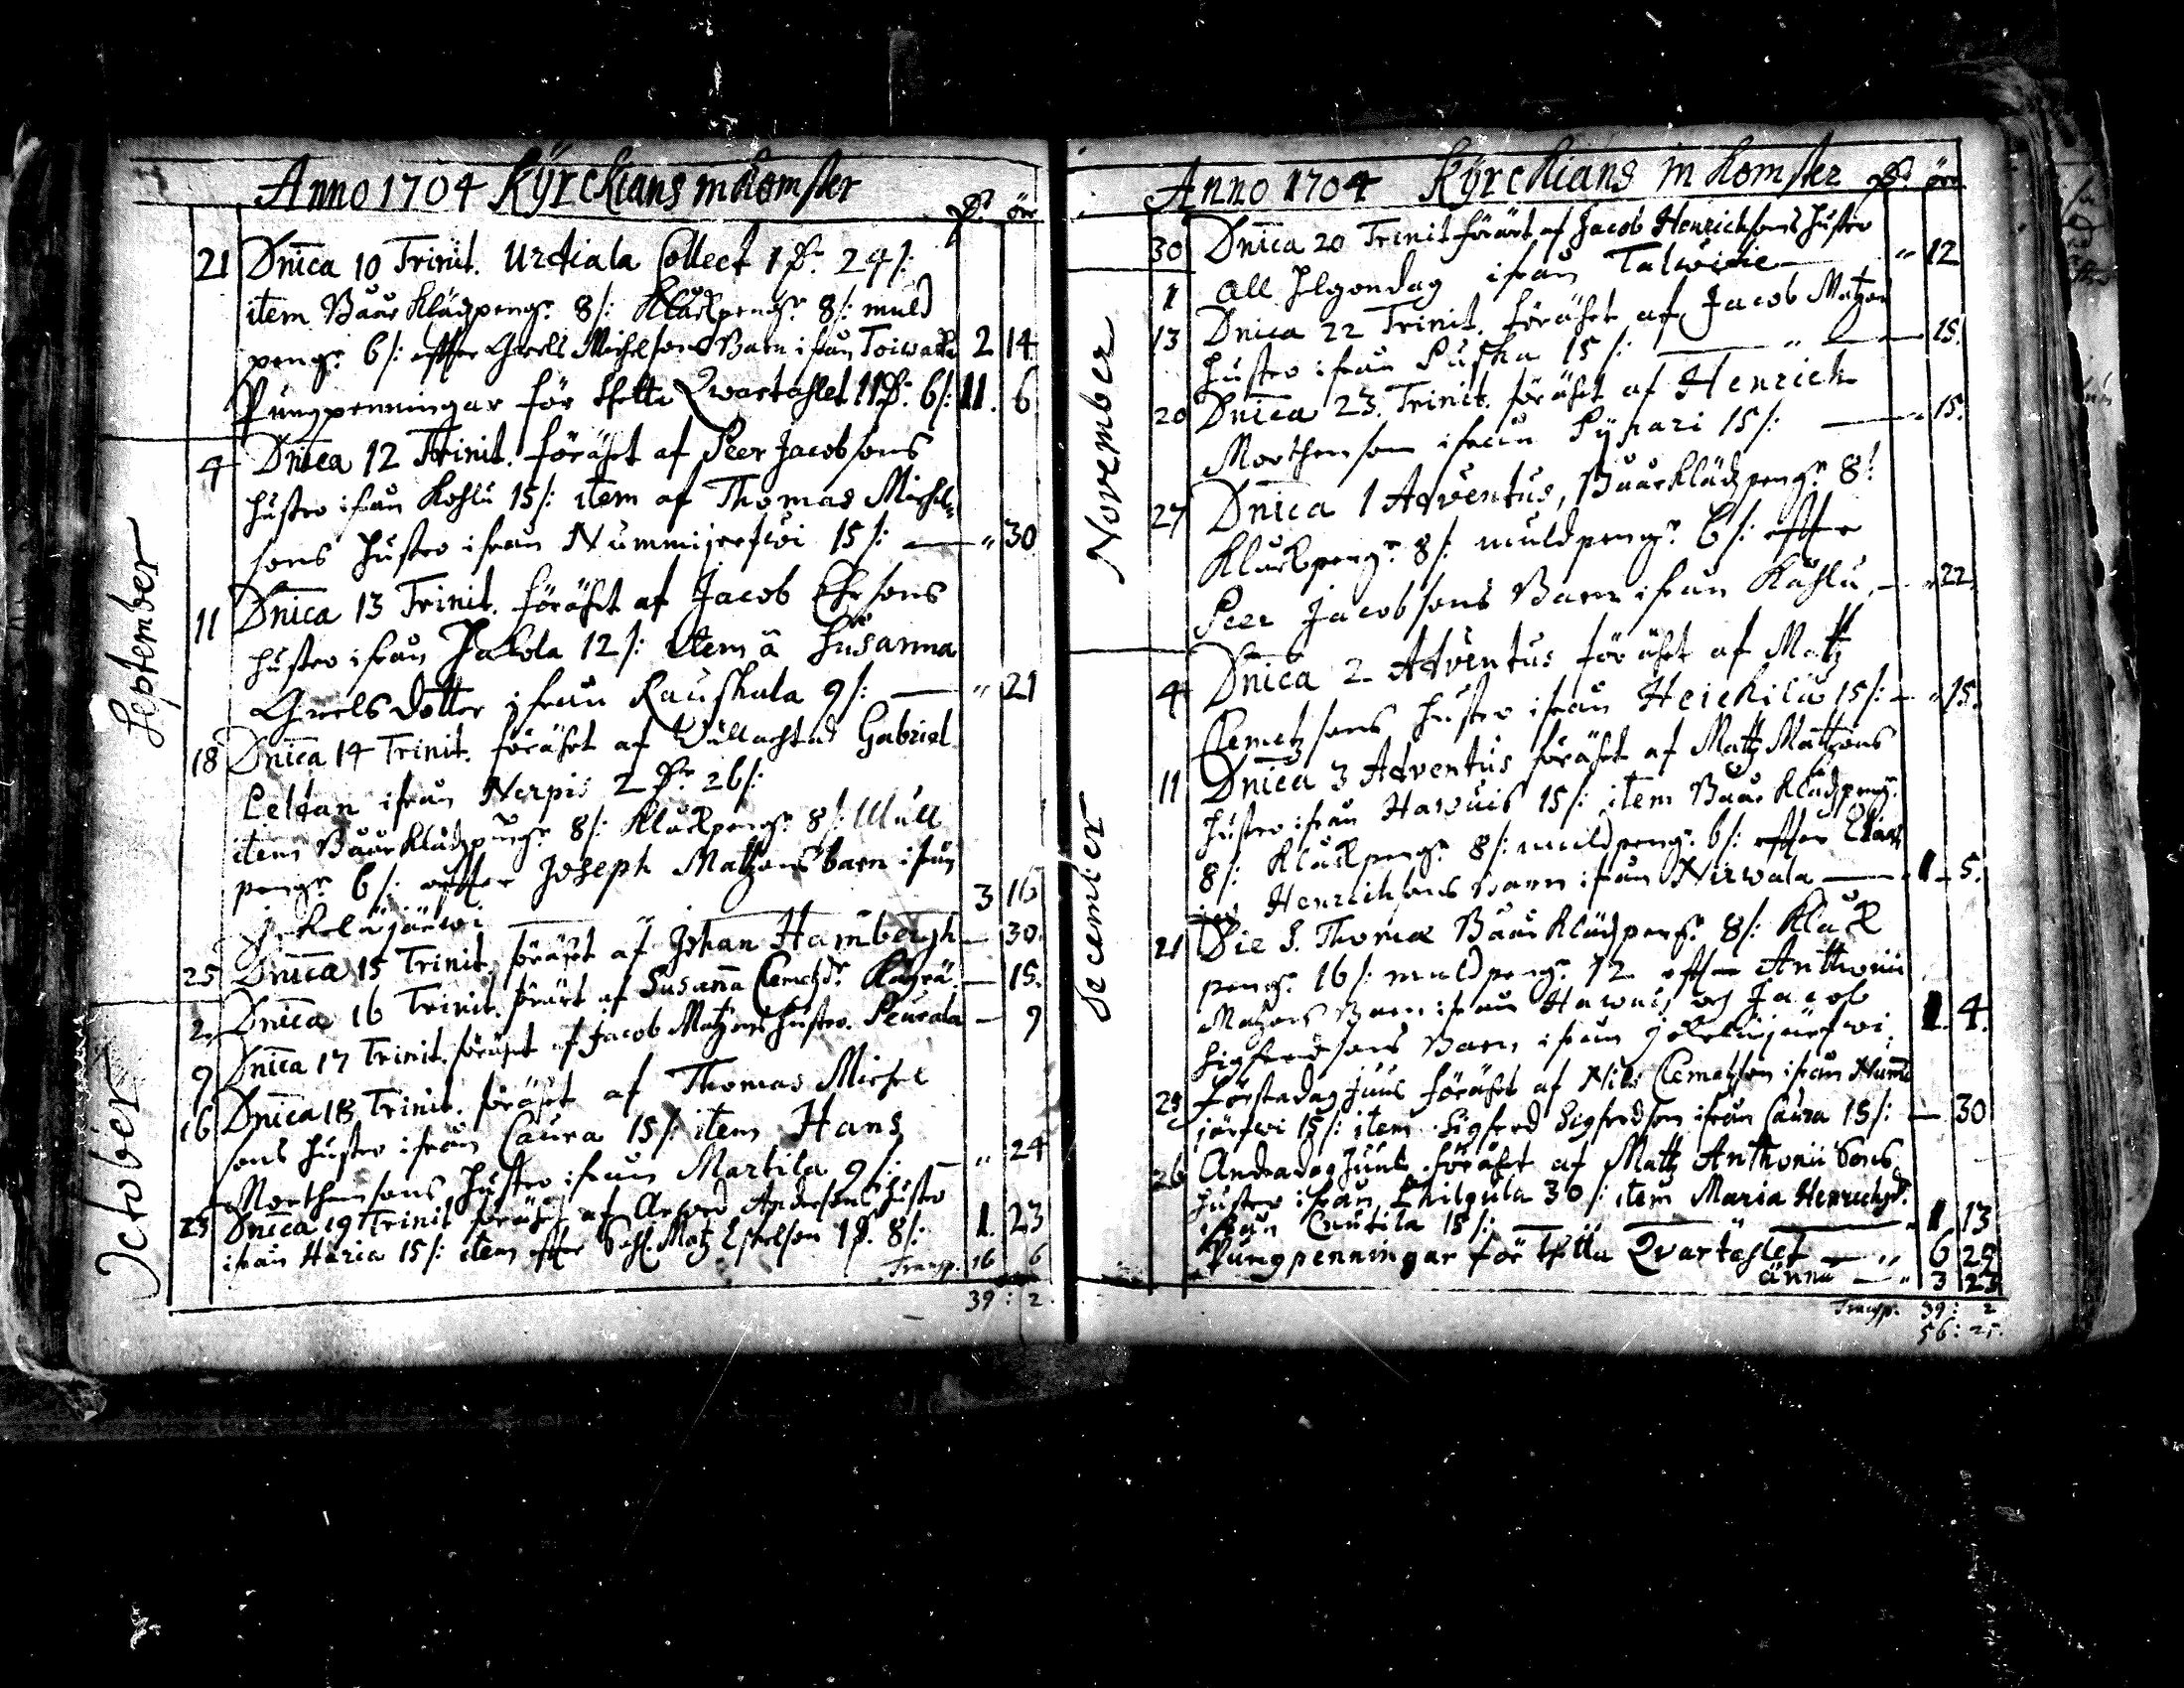 Anno 1704 Kÿrckians inkomster
Dr öre
21 Dnica 10 Trinit. Urdiala Collect 1 Dr 24 /:
item Båår Klädpengr 8 /: Klåckpengr 8 /: muld
pengr 6 /: effter Grels Michelsons Barn ifrån Toiwacka 2 14
Pungpenningar för thetta Qwartahlet 11 Dr 6 /: 11. 6
September
4 Dnica 12 Trinit. förährt af Peer Jacobsons
hustro ifrån Kohlu 15 /: item af Thomas Michel=
sons hustro ifrån Nummijerfwi 15 /: — " 30
11 Dnica 13 Trinit. förährt af Jacob Ersons
hustro ifrån Jakola 12 /: item a Susanna
Grelsdotter ifrån Rauskala 9 /: — " 21
18 Dnica 14 Trinit. förährt af Gabriel
Peldan ifrån Nerpis 2 Dr 26 /:
item Båår Klädpengr 8 /: Klåckpengr 8 /: Mull
pengr 6 /: effter Joseph Matzons barn ifrån
jokelajärwi 3 16
25 Dnica 15 Trinit. förährt af Johan Hambergh — 30.
October
2 Dnica 16 Trinit. förärt af Susanna Clemetzdr — 15.
9 Dnica 17 Trinit. förährt af Jacob Matzons hustro. Peurala — 9
16 Dnica 18 Trinit. förährt af Thomas Michel
sons hustro ifrån Caura 15 /: item Hans
Morthensons hustro ifrån Martila 9 /: — " 24
23 Dnica 19 Trinit förährt af Anderssons hustro
ifrån Haria 15 /: item effter Sahl. Matz Eskelson 1 Dr 8 /: 1. 23
Transp. 16 6
39 : 2.
Anno 1704 Kÿrckians inkomster Dr öre
30 Dnica 20 Trinit förärt af Jacob Henrichsons hustro
ifrån Talwitie — " 12
November
1 All Helgondag
13 Dnica 22 Trinit. förährt af Jacob Matzon
hustro ifrån Puska 15 /: — " — 15.
20 Dnica 23. Trinit. förährt af Henrich
Morthenson ifrån Pyhari 15 /: — . 15.
27 Dnica 1 Adventus, Båår Klädpengr 8 /:
Klåckpengr 8 /: muldpengr 6 /: effter
Peer Jacobsons Barn ifrån Kåhlu, — " 22.
December
4 Dnica 2 Adventus förährt af Matz
Clemetzsons hustro ifrån Heickilä 15 /: — " 15.
11 Dnica 3 Adventus förährt af Matz Matzons
hustro ifrån Hawuis 15 /: item Båår Klädpengr
8 /: Klåckpengr 8 /: muldpengr 6 /: effter
Henrichsons barn ifrån Nirwala — 1 — 5.
21 Die S. Thomæ Båår Klädpengr 8 /: Klåck
pengr 16 /: muldpengr 12 effter Anthonii
Matzons Barn ifrån Hawuis och Jacob
Sigfredsons Barn ifrån jokelajärfwi. 1. 4.
25 Förstadag Juul förährt af Nils Clemetzson ifrån Numi
järfwi 15 /: item Sigfred Sigfredson ifrån Caura 15 /: — 30
26 Andradag Juul förährt af Matz Anthonii Sons
hustro ifrån Philpula 30 /: item Maria Henrichsdr
ifrån Cnutila 15 /: — 1 13
Pungpenningar för thetta Qvartahlet — " 6 29
ännu — " 3 23
Transp. 39 : 2
56 : 25.